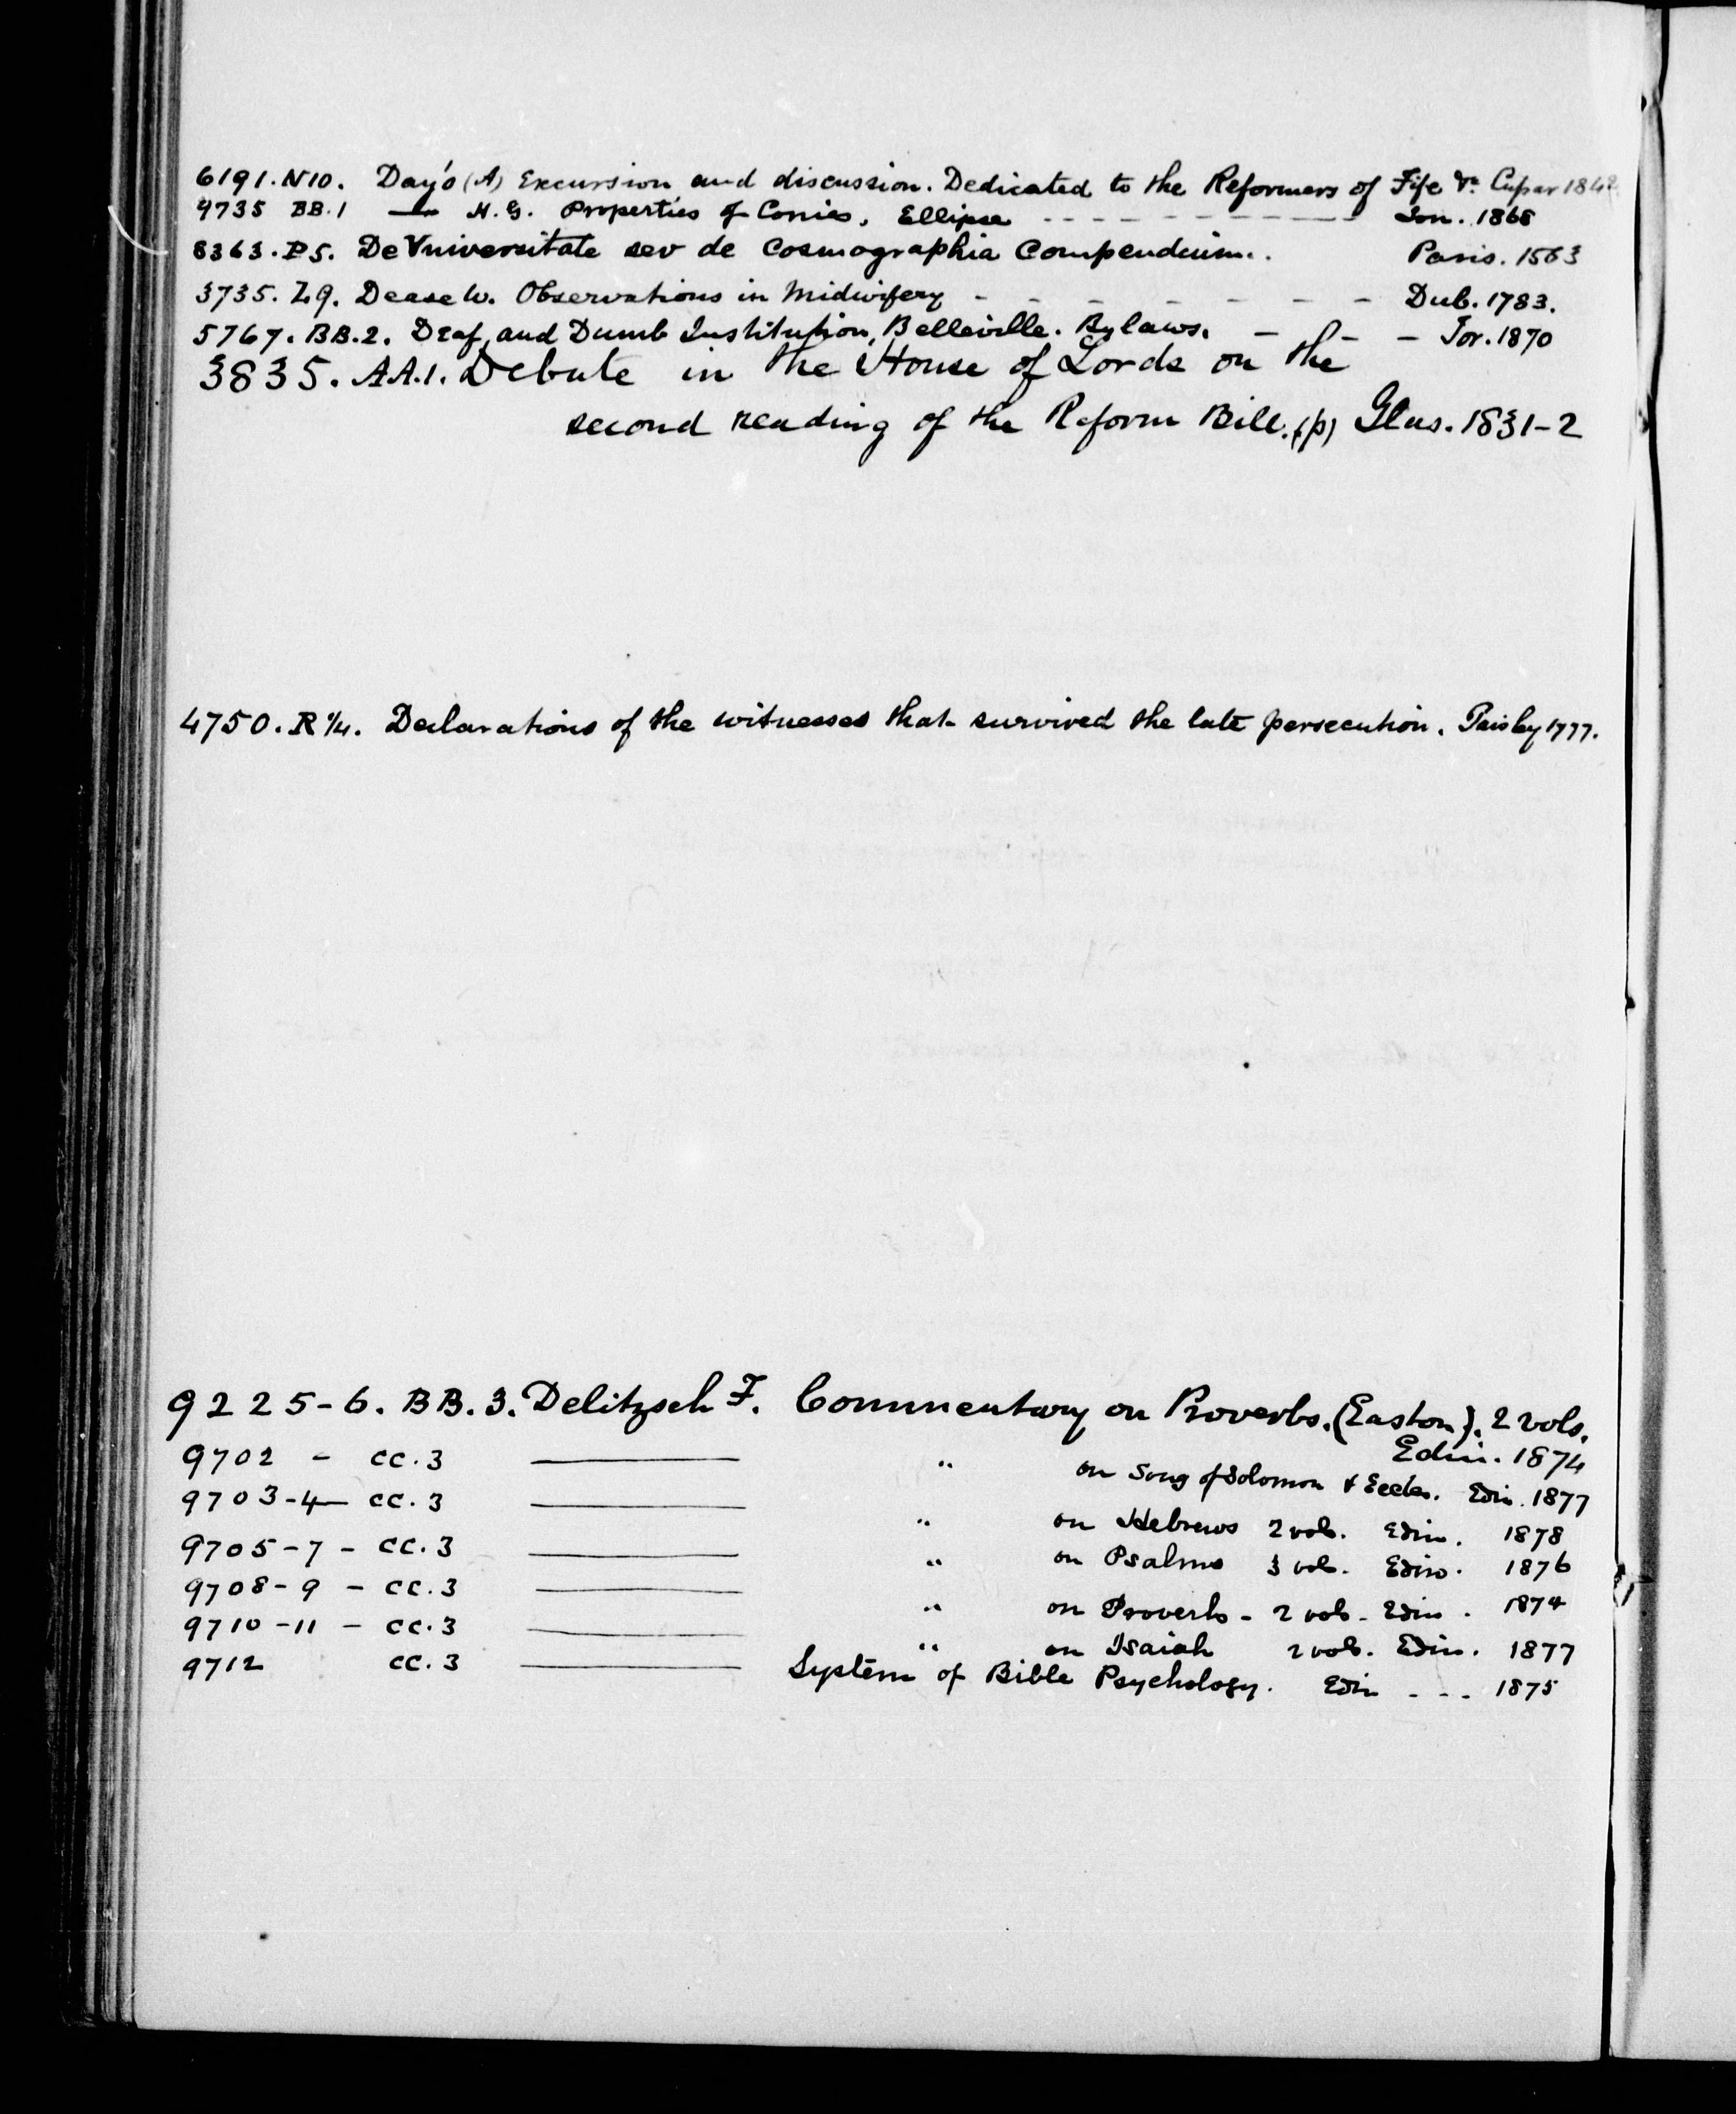 6191. N10. Day's (A) Excursion and discussion. Dedicated to the Reformers of Fife &c Cupar
9735 BB.1 — H. G. Properties of Conics, Ellipse - - - - - - - - Lon. 1868
8363. P5. De Vniversitate sev de Cosmographia Compendium.. Paris. 1563
3735. Z9. Dease W. Observations in Midwifery - - - - - - Dub. 1783.
5767. BB.2. Deaf and Dumb Institution, Belleville. By laws. - - - Tor. 1870
3835. AA.1. Debate in the House of Lords on the
second reading of the Reform Bill. (p) Glas. 1831-2
4750. R 1/4. Declarations of the witnesses that survived the late persecution. Paisley 1777.
9225-6. BB.3. Delitzsch F. Commentary on Proverbs. (Easton). 2 vols.
Edin. 1874
9702 - CC.3 ——— " on Song of Solomon & Eccles. Edin. 1877
9703-4 — CC.3 ——— " on Hebrews 2 vols. Edin. 1878
9705-7 - CC.3 ——— " on Psalms 3 vols. Edin. 1876
9708-9 - CC.3 ——— " on Proverbs - 2 vols - Edin. 1874
9710-11 - CC.3 ——— " on Isaiah 2 vols. Edin. 1877
9712 CC.3 ——— System of Bible Psychology. Edin - - - 1875